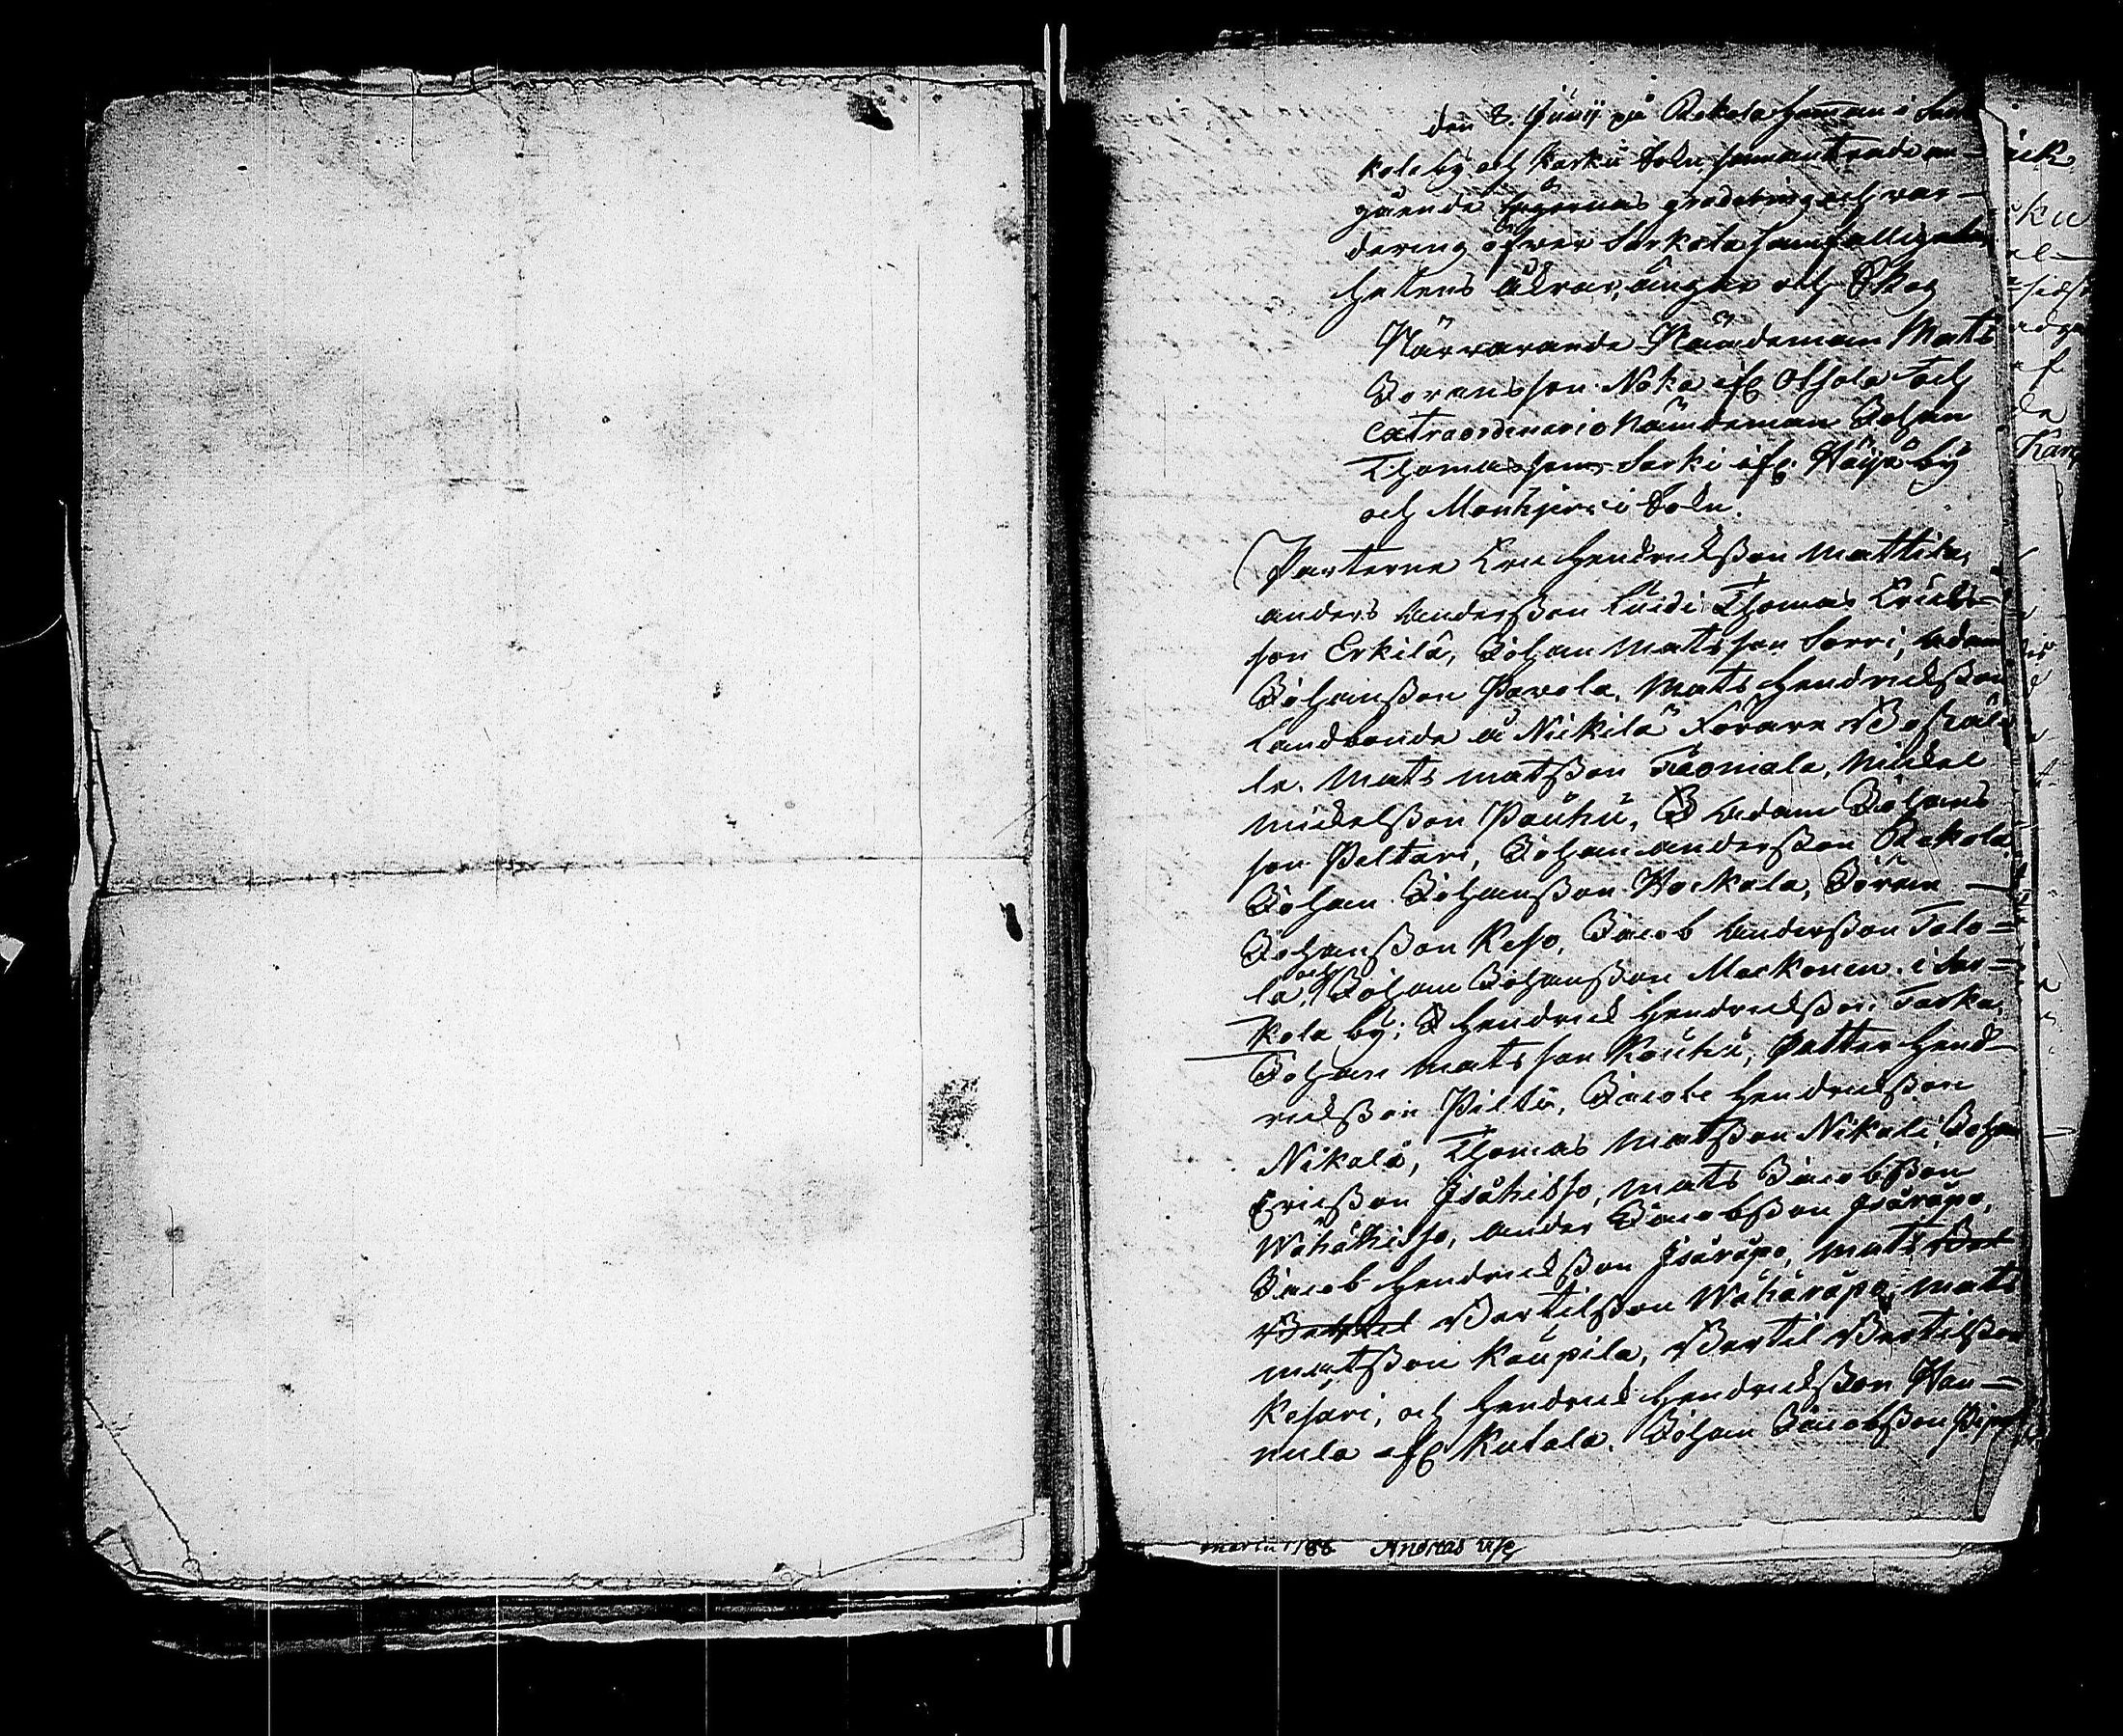 den 8. Junij på Rekola hemman i Sar
kola by och Karku Sokn, samantrade an-
gående ägornas gradering och var-
dering öfwer Sarkola samfällighe
hetens åkrar, ängar och Skog
Närvarande Nämdeman Mats
Joransson Noka ifr Otsola och
extraordinario Nämdeman Johan
Thomasson Sarki ifr. Häijä by
och Mouhijerwi Sokn.
Parterne Eric Hendricksson Mattila,
anders Andersson Luidi Thomas Ericks-
son Erkilä, Johan Matsson Sorri, Adam
Johansson Pavola, Mats Hendricksson
Landbonde å Nickilä Förare Bostäl
le. Mats Matsson Tåoniala, Mickel
Mickelsson Pouhu, Adam Johans
son Peltari, Johan andersson Rekola
Johan Johansson Hockala, Jöran
Johansson Keso, Jacob Andersson Talo-
la, och Johan Johansson Markonen i Sar-
kola by; Hendrick Hendricksson Tarka,
Johan Matsson Kouhu, Petter Hend
ricksson Piltu, Jacob Hendricksson
Nikala, Thomas Matsson Nikali, Johan
Ericsson Isähisso, Mats Jacobsson
Wähähisso, ander Jacobsson Isäräpo,
Jacob Hendricksson Isäräpo, Mats Bert
Bertel Bertilsson Wähäräpo, Mats
Matsson Kaupila, Bertil Bertilsson
Kesari, och Hendrick Hendricksson Han-
nula ifr Kutala. Johan Jacobsson